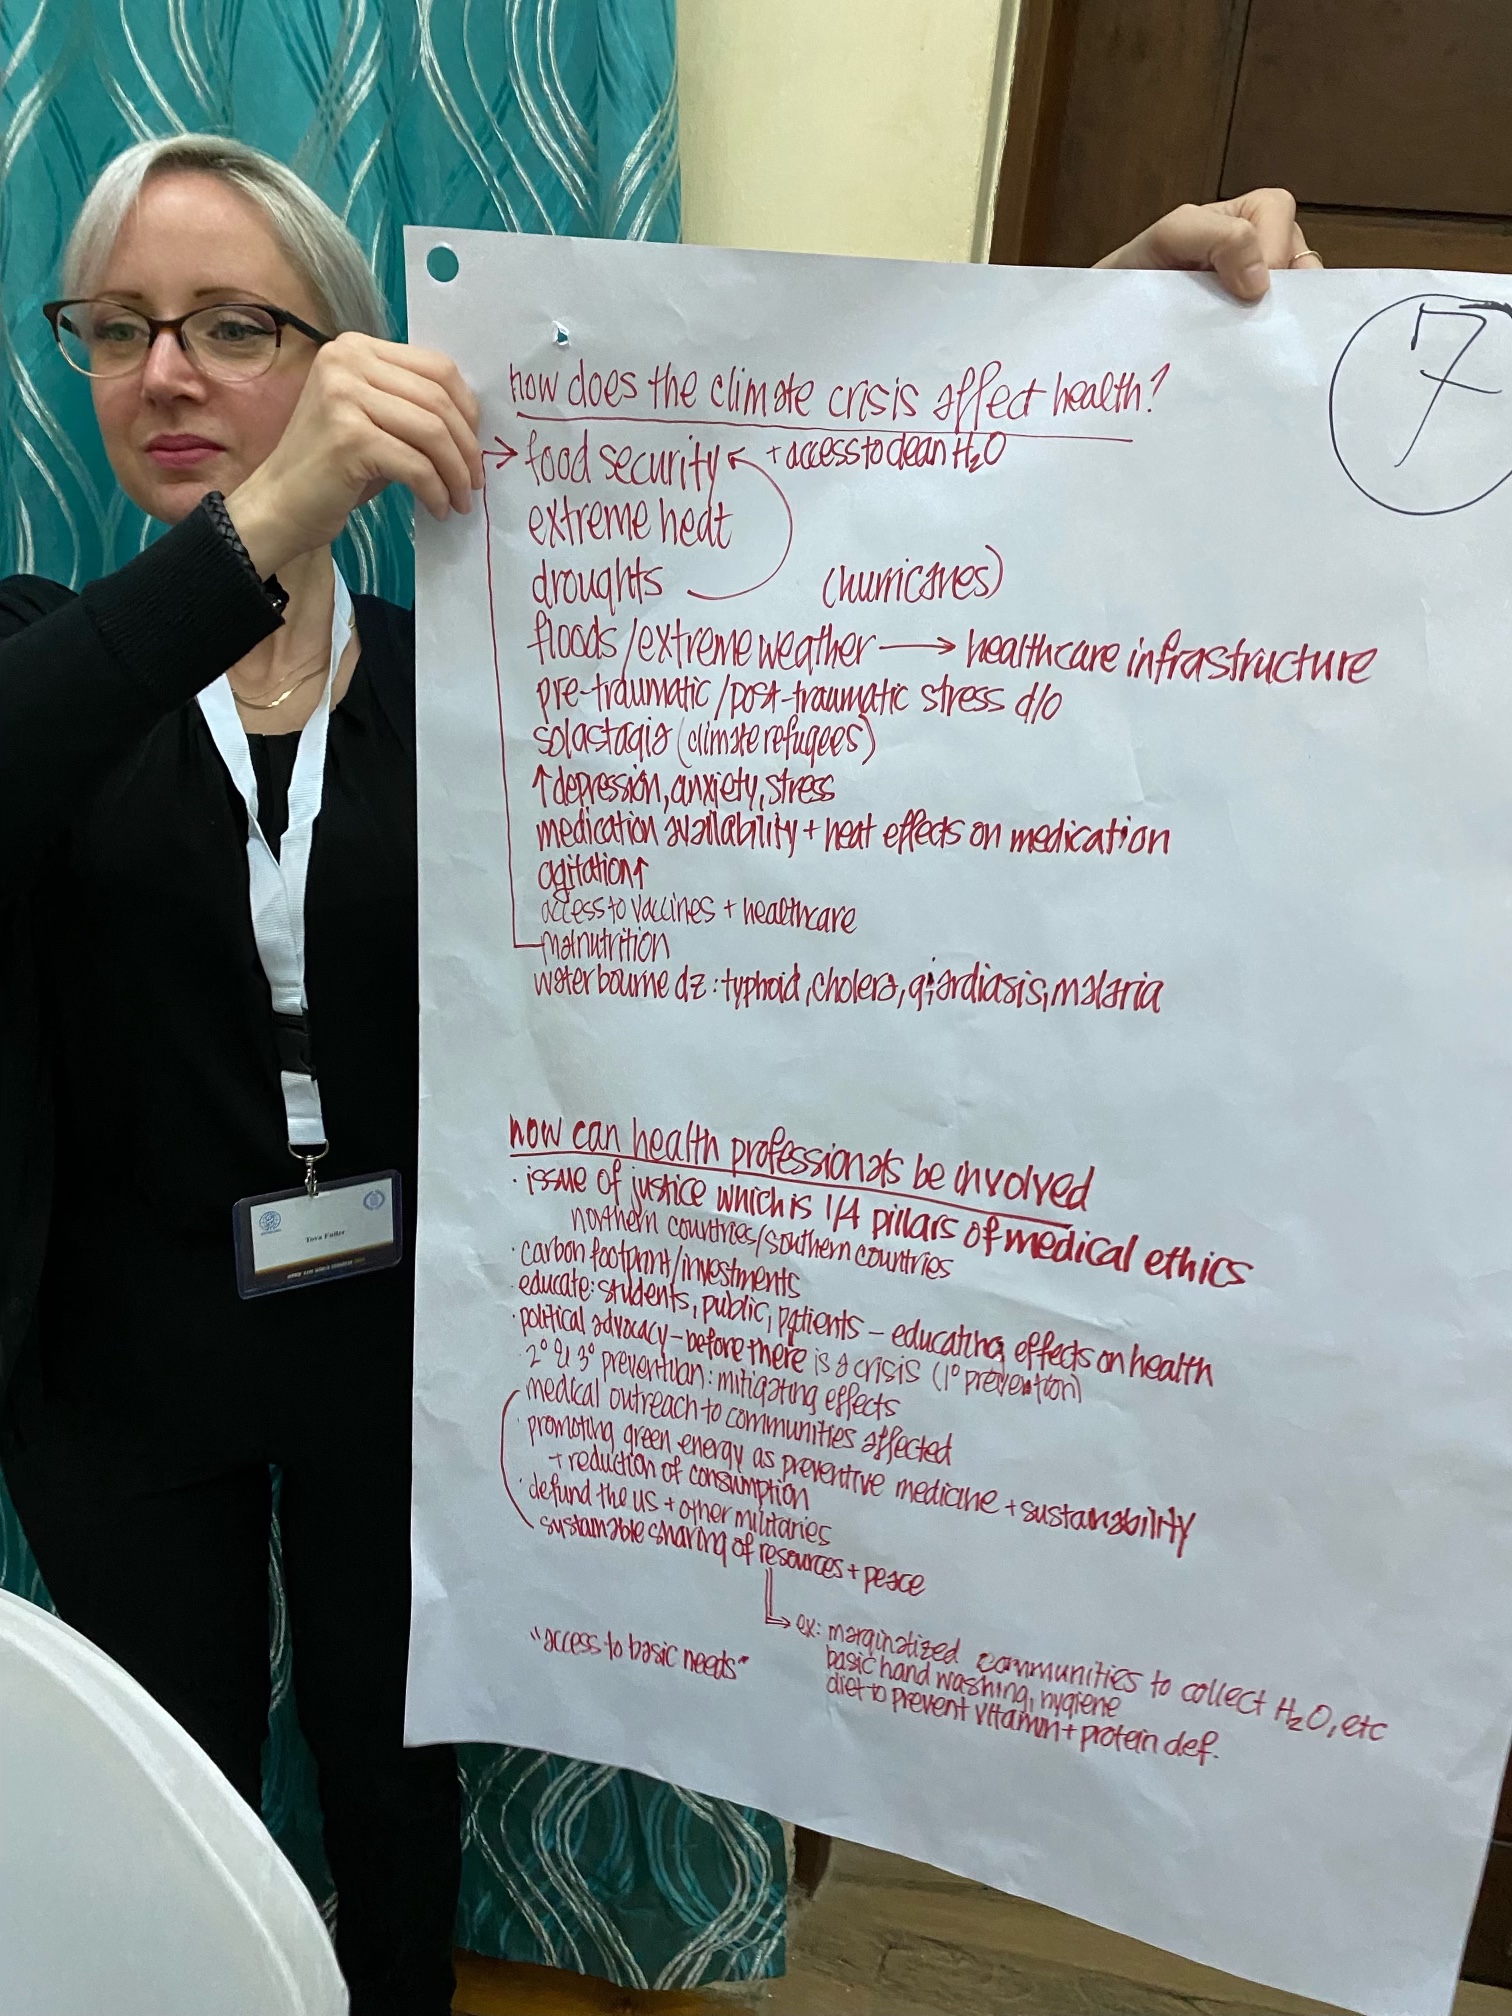 7
how does the climate crisis affect health?
→ food security + access to clean H₂O
extreme heat
droughts (hurricanes)
floods/extreme weather → healthcare infrastructure
pre-traumatic/post-traumatic stress d/o
solastagia (climate refugees)
↑depression, anxiety, stress
medication availability + heat effects on medication
agitation↑
access to vaccines + healthcare
malnutrition
waterbourne dz: typhoid, cholera, giardiasis, malaria
how can health professionals be involved
· issue of justice which is 1/4 pillars of medical ethics
northern countries/southern countries
· carbon footprint/investments
· educate: students, public, patients – educating effects on health
· political advocacy – before there is a crisis (1° prevention)
· 2° & 3° prevention: mitigating effects
medical outreach to communities affected
· promoting green energy as preventive medicine + sustainability
+ reduction of consumption
· defund the US + other militaries
sustainable sharing of resources + peace
→ ex: marginalized communities to collect H₂O, etc
basic hand washing, hygiene
diet to prevent vitamin + protein def.
"access to basic needs"
Tova Fuller